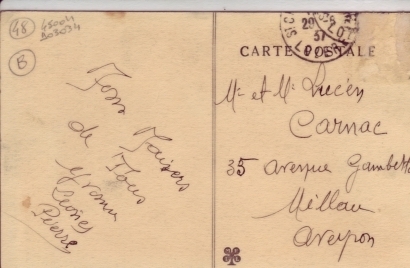 48
45004
B03034
B
Bons Baisers
de Tous
Yvonne
Leones
Pierre
20
37
LOZERE
CARTE POSTALE
Mr et Me Lucien
Carnac
35 avenue Gambetta
Millau
Aveyron